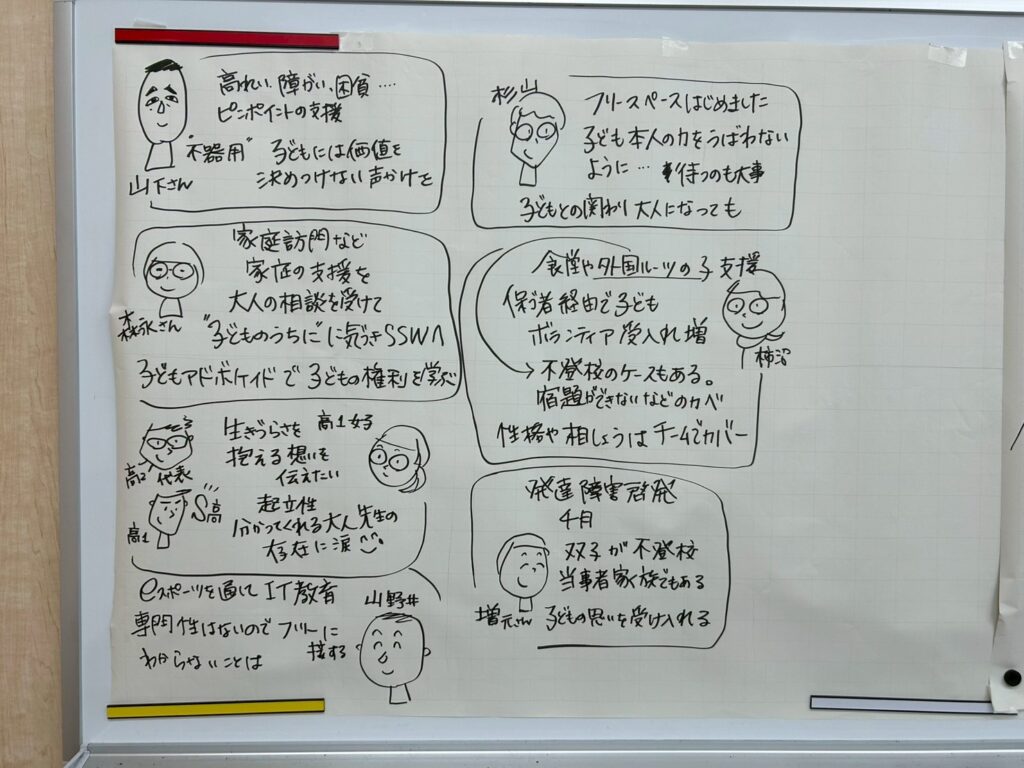 高れい、障がい、困貧....
ピンポイントの支援
"不器用" 子どもには価値を
決めつけない声かけを
山下さん
家庭訪問など
家庭の支援を
大人の相談を受けて
"子どものうちに"に気づきSSWへ
子どもアドボケイドで子どもの権利を学ぶ
森永さん
生きづらさを
抱える想いを
伝えたい
高1女子
高2 代表
高1
S高
起立性
分かってくれる大人先生の
存在に涙
eスポーツを通してIT教育
専門性はないのでフリーに
接する
わからないことは
山野井
杉山
フリースペースはじめました
子ども本人の力をうばわない
ように… 待つのも大事
子どもとの関わり大人になっても
食堂や外国ルーツの子支援
保ご者経由で子ども
ボランティア受入れ増
→不登校のケースもある。
宿題ができないなどのカベ
性格や相しょうはチームでカバー
柿沼
発達障害啓発
4月
双子が不登校
当事者家族でもある
子どもの思いを受け入れる
増元さん